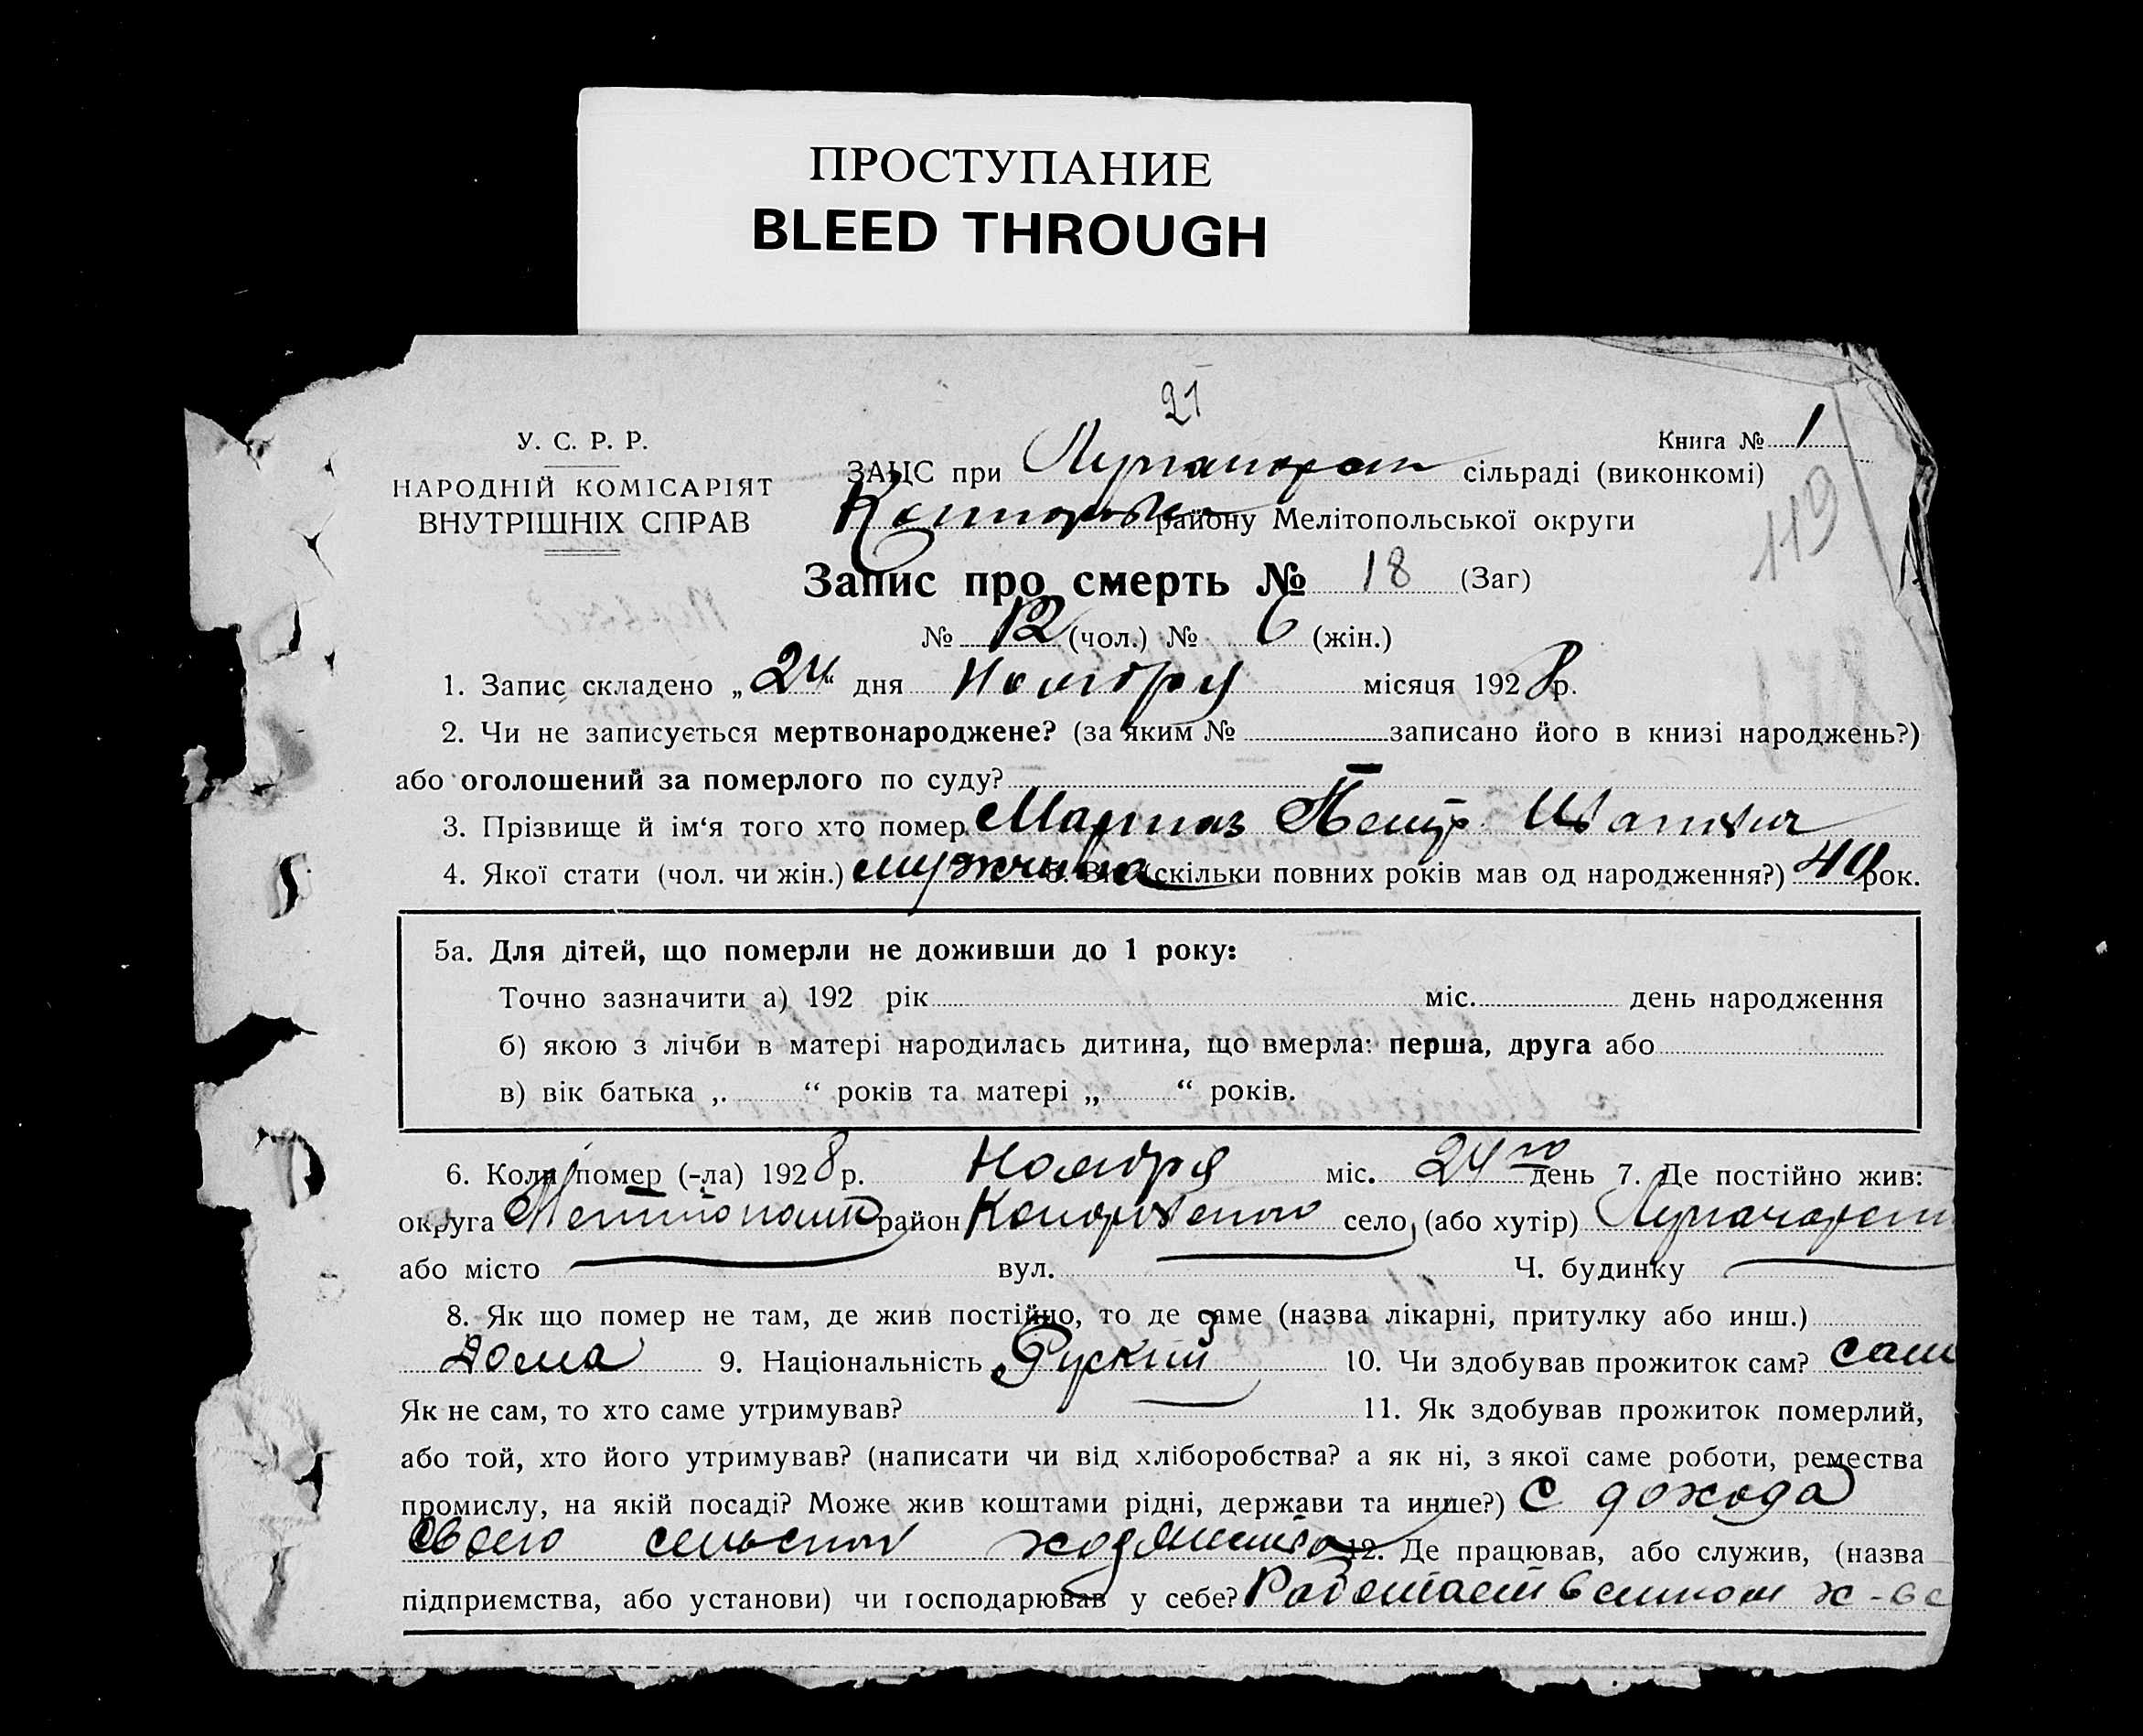 ПРОСТУПАНИЕ
BLEED THROUGH
21
У. С. Р. Р.
НАРОДНІЙ КОМІСАРІЯТ
ВНУТРІШНІХ СПРАВ
Книга № 1
ЗАЦС при сільраді (виконкомі)
району Мелітопольської округи
119
Запис про смерть № 18 (Заг)
№ 12 (чол.) № 6 (жін.)
1. Запис складено „24“ дня Ноября місяця 1928 р.
2. Чи не записується мертвонароджене? (за яким № записано його в книзі народжень?)
або оголошений за померлого по суду? —
3. Прізвище й ім‘я того хто помер Петр
4. Якої стати (чол. чи жін.) мужчина 5. Вік (скільки повних років мав од народження?) 40 рок.
5а. Для дітей, що померли не доживши до 1 року:
Точно зазначити а) 192 рік міс. день народження
б) якою з лічби в матері народилась дитина, що вмерла: перша, друга або
в) вік батька „ “ років та матері „ “ років.
6. Коли помер (-ла) 1928 р. Ноября міс. 24го день 7. Де постійно жив:
округа район село, (або хутір)
або місто — вул. — Ч. будинку —
8. Як що помер не там, де жив постійно, то де саме (назва лікарні, притулку або инш.)
Дома 9. Національність Руский 10. Чи здобував прожиток сам? сам
Як не сам, то хто саме утримував? — 11. Як здобував прожиток померлий,
або той, хто його утримував? (написати чи від хліборобства? а як ні, з якої саме роботи, ремества
промислу, на якій посаді? Може жив коштами рідні, держави та инше?) С дохода
своего сельского хозяйства 12. Де працював, або служив, (назва
підприємства, або установи) чи господарював у себе? Работает в х-ве